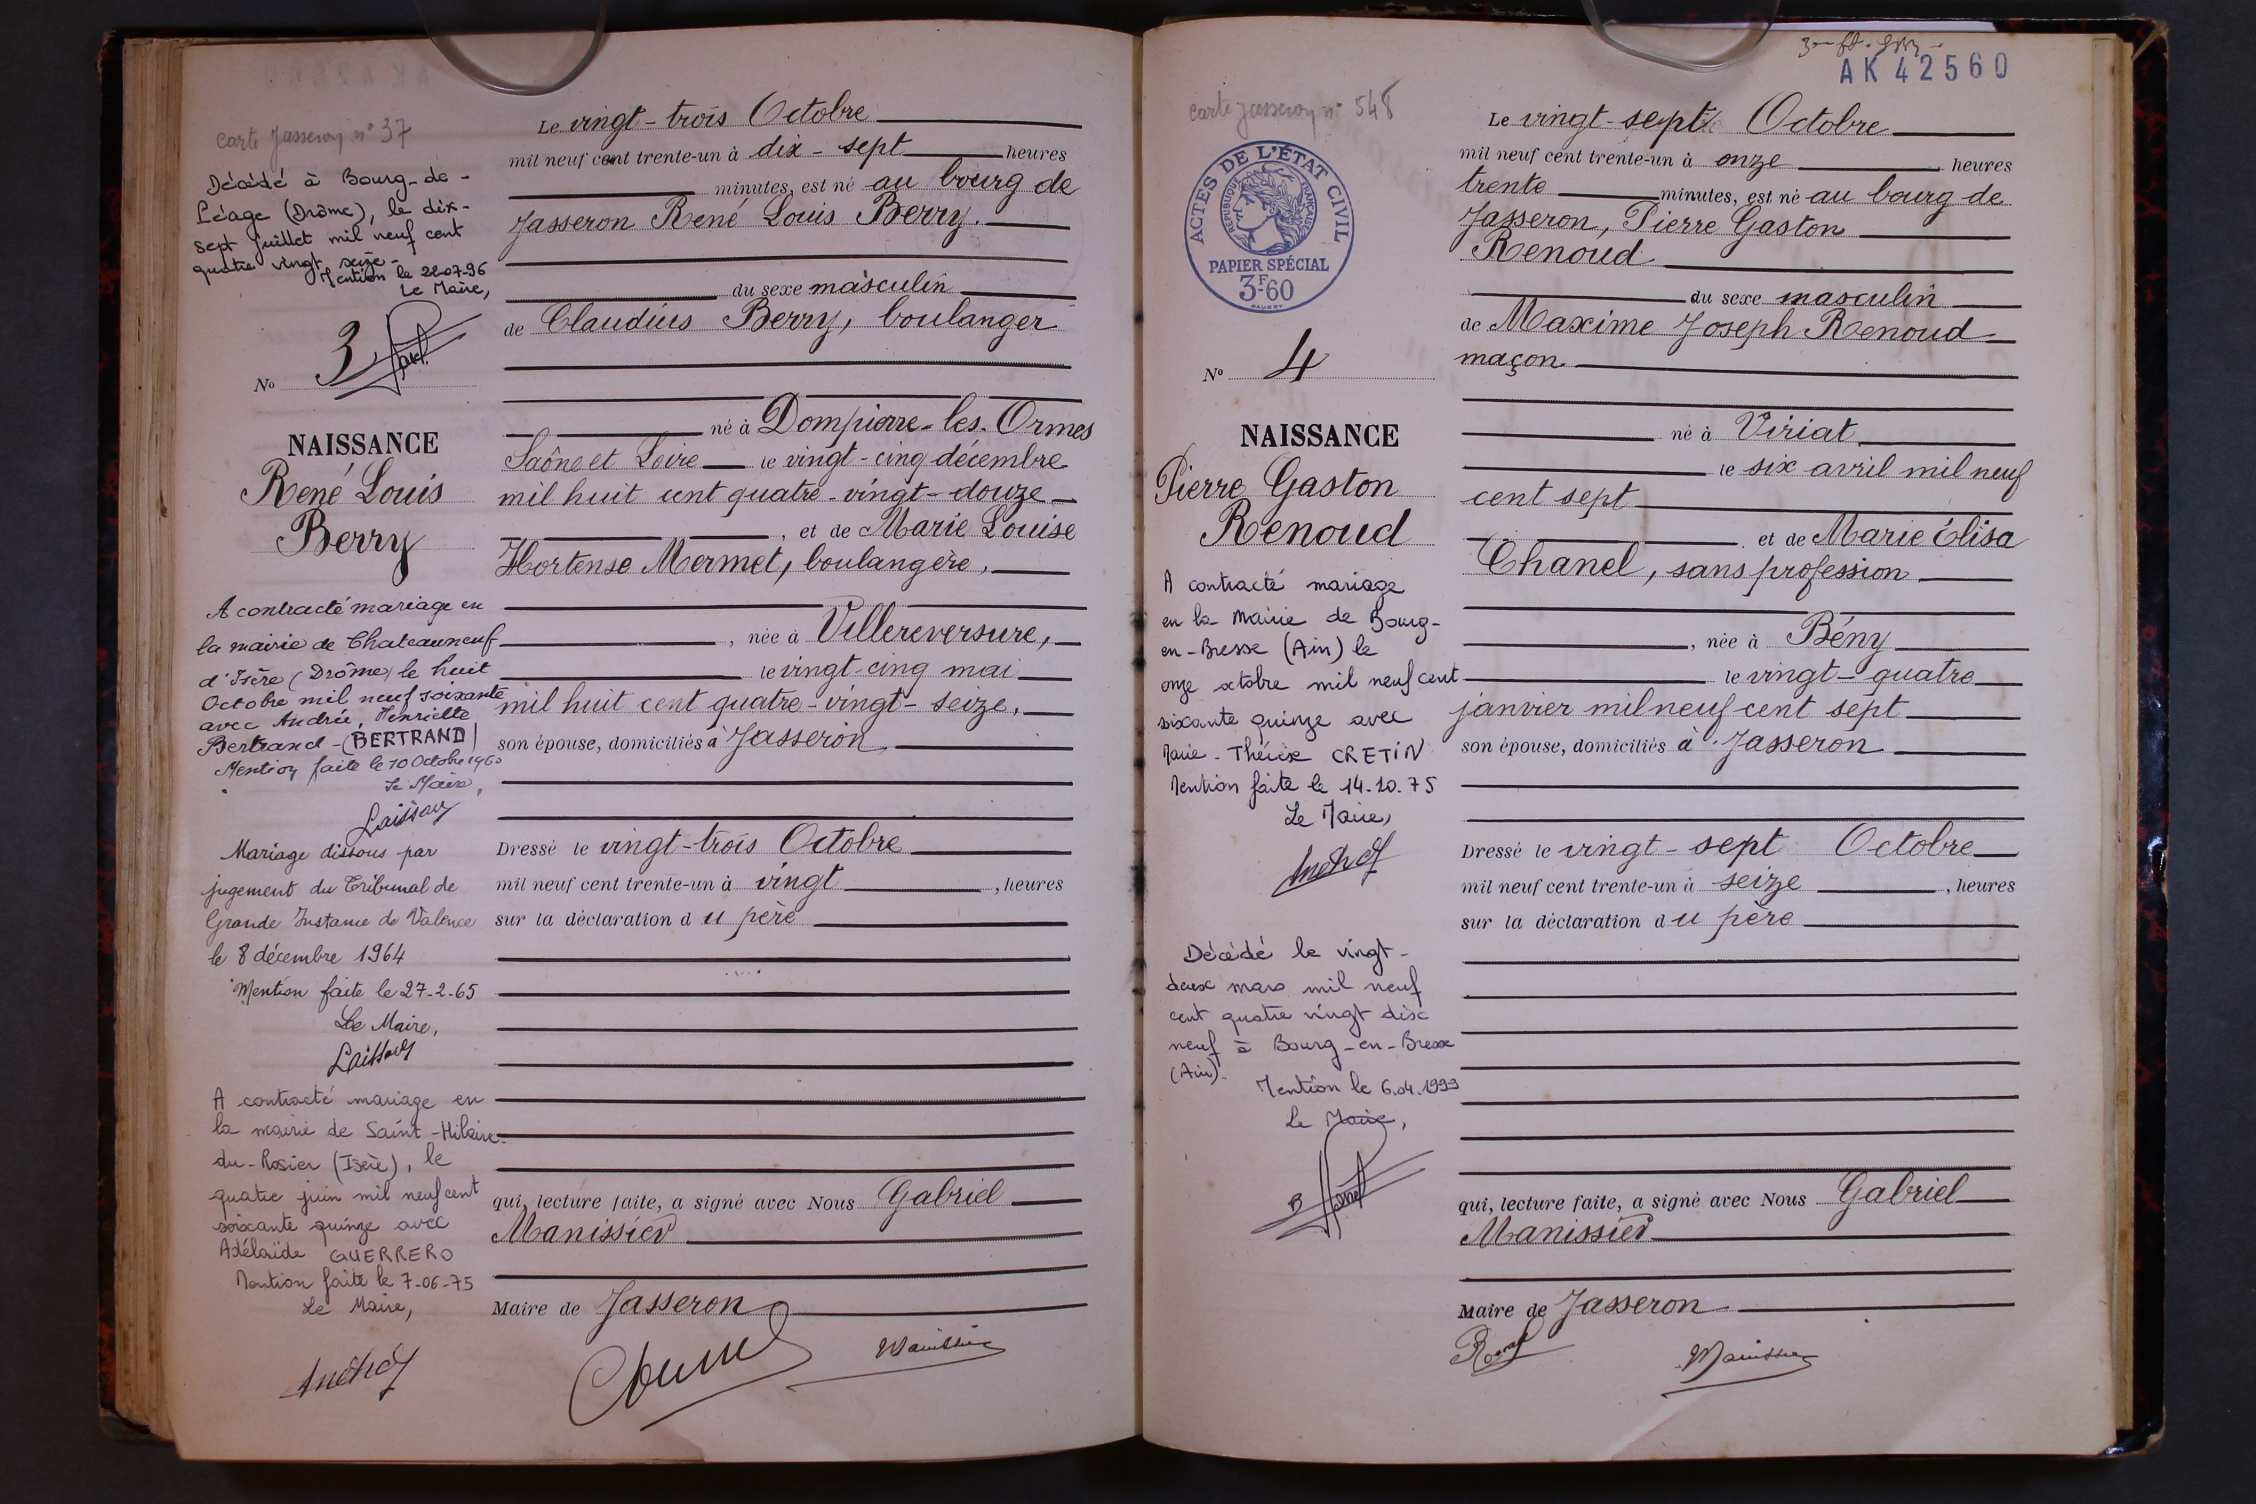 Carte Jasseron n° 37
Décédé à Bourg-de-
Péage (Drôme), le dix-
sept juillet mil neuf cent
quatre vingt seize-
Mention le 22-07-96
Le Maire,
N° 3
NAISSANCE
René Louis
Berry
A contracté mariage en
la mairie de Chateauneuf
d'Isère (Drôme) le huit
Octobre mil neuf soixante
avec Andrée, Henriette
Bertrand - (BERTRAND)
Mention faite le 10 Octobre 1960
Le Maire,
Mariage dissous par
jugement du Tribunal de
Grande Instance de Valence
le 8 décembre 1964
Mention faite le 27-2-65
Le Maire,
A contracté mariage en
la mairie de Saint-Hilaire-
du-Rosier (Isère), le
quatre juin mil neuf cent
soixante quinze avec
Adélaïde GUERRERO
Mention faite le 7-06-75
Le Maire,
Le vingt-trois Octobre
mil neuf cent trente-un à dix-sept heures
minutes, est né au bourg de
Jasseron René Louis Berry.
du sexe masculin
de Claudius Berry, boulanger
né à Dompierre-les-Ormes
Saône et Loire le vingt-cinq décembre
mil huit cent quatre-vingt-douze
, et de Marie Louise
Hortense Mermet, boulangère,
, née à Villereversure,
le vingt-cinq mai
mil huit cent quatre-vingt-seize,
son épouse, domiciliés à Jasseron
Dressé le vingt-trois Octobre
mil neuf cent trente-un à vingt , heures
sur la déclaration du père
qui, lecture faite, a signé avec Nous Gabriel
Manissier
Maire de Jasseron
Manissier
AK 42560
Carte Jasseron n° 548
ACTES DE L'ÉTAT CIVIL
RÉPUBLIQUE FRANÇAISE
PAPIER SPÉCIAL
3F60
N° 4
NAISSANCE
Pierre Gaston
Renoud
A contracté mariage
en la Mairie de Bourg-
en-Bresse (Ain) le
onze octobre mil neuf cent
soixante quinze avec
Marie-Thérèse CRETIN
Mention faite le 14.10.75
Le Maire,
Décédé le vingt-
deux mars mil neuf
cent quatre vingt dix
neuf à Bourg-en-Bresse
(Ain).
Mention le 6.04.1999
Le Maire,
Le vingt-sept Octobre
mil neuf cent trente-un à onze heures
trente minutes, est né au bourg de
Jasseron, Pierre Gaston
Renoud
du sexe masculin
de Maxime Joseph Renoud
maçon
né à Viriat
le six avril mil neuf
cent sept
et de Marie Élisa
Chanel, sans profession
, née à Bény
le vingt-quatre
janvier mil neuf cent sept
son épouse, domiciliés à Jasseron
Dressé le vingt-sept Octobre
mil neuf cent trente-un à seize , heures
sur la déclaration du père
qui, lecture faite, a signé avec Nous Gabriel
Manissier
Maire de Jasseron
Manissier